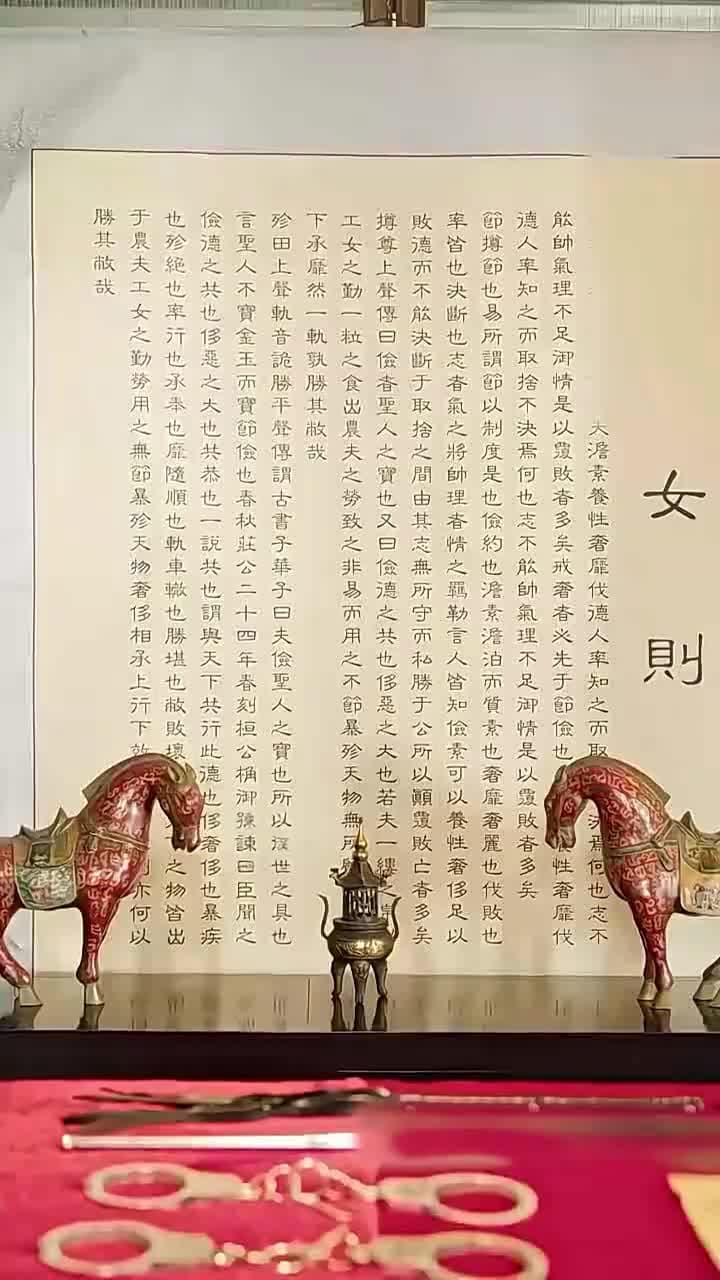 女則
夫澹素養性奢靡伐德人率知之而取決焉何也志不
能帥氣理不足御情是以覆敗者多矣戒奢者必先于節儉也養性奢靡伐
德人率知之而取捨不決焉何也志不能帥氣理不足御情是以覆敗者多矣
節撙節也易所謂節以制度是也儉約也澹素澹泊而質素也奢靡奢麗也伐敗也
率皆也決斷也志者氣之將帥理者情之羈勒言人皆知儉素可以養性奢侈足以
敗德而不能決斷于取捨之間由其志無所守而私勝于公所以顚覆敗亡者多矣
撙尊上聲傳曰儉者聖人之寶也又曰儉德之共也侈惡之大也若夫一縷
工女之勤一粒之食出農夫之勞致之非易而用之不節暴殄天物無所
下承靡然一軌孰勝其敝哉
殄田上聲軌音詭勝平聲傳謂古書子華子曰夫儉聖人之寶也所以濟世之具也
言聖人不寶金玉而寶節儉也春秋莊公二十四年春刻桓公桷御孫諫曰臣聞之
儉德之共也侈惡之大也共恭也一說共也謂與天下共行此德也侈奢侈也暴疾
也殄絕也率行也承奉也靡隨順也軌車轍也勝堪也敝敗壞之物皆出
于農夫工女之勤勞用之無節暴殄天物奢侈相承上行下效亦何以
勝其敝哉